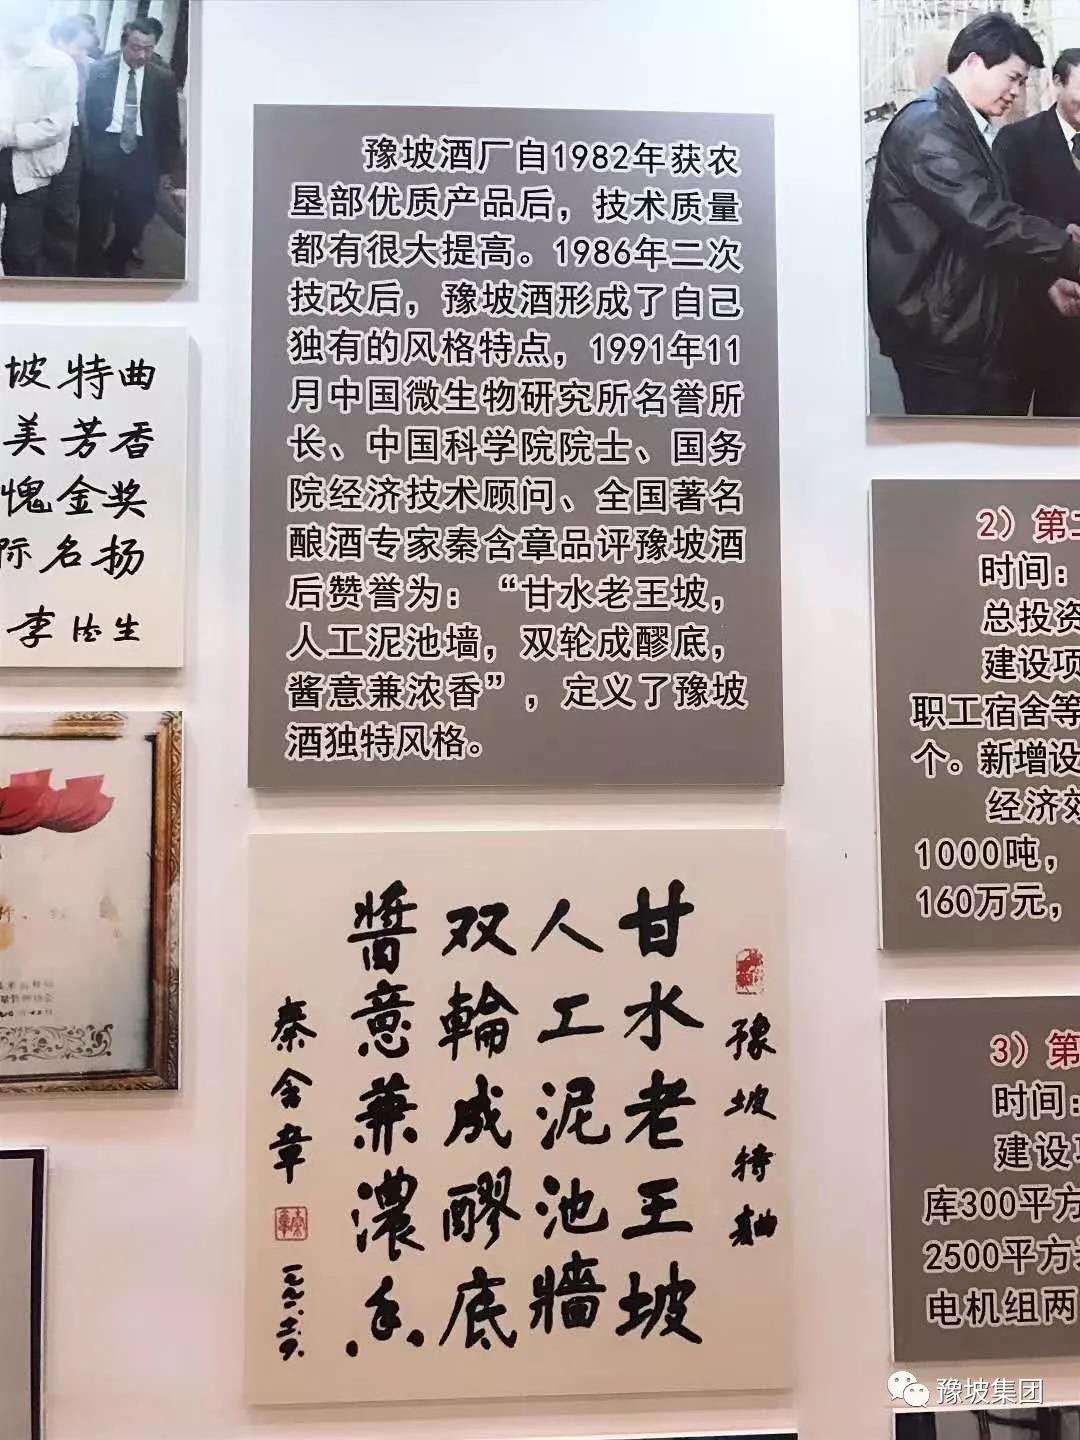 豫坡酒厂自1982年获农
垦部优质产品后，技术质量
都有很大提高。1986年二次
技改后，豫坡酒形成了自己
独有的风格特点，1991年11
月中国微生物研究所名誉所
长、中国科学院院士、国务
院经济技术顾问、全国著名
酿酒专家秦含章品评豫坡酒
后赞誉为：“甘水老王坡，
人工泥池墙，双轮成醪底，
酱意兼浓香”，定义了豫坡
酒独特风格。
坡特曲
美芳香
愧金奖
际名扬
李法生
豫坡特麯
甘水老王坡
人工泥池墻
双輪成醪底
醬意兼濃香
秦含章
2）第二
时间：
总投资
建设项
职工宿舍等
个。新增设
经济效
1000吨，
160万元，
3）第
时间：
建设项
库300平方
2500平方米
电机组两
豫坡集团